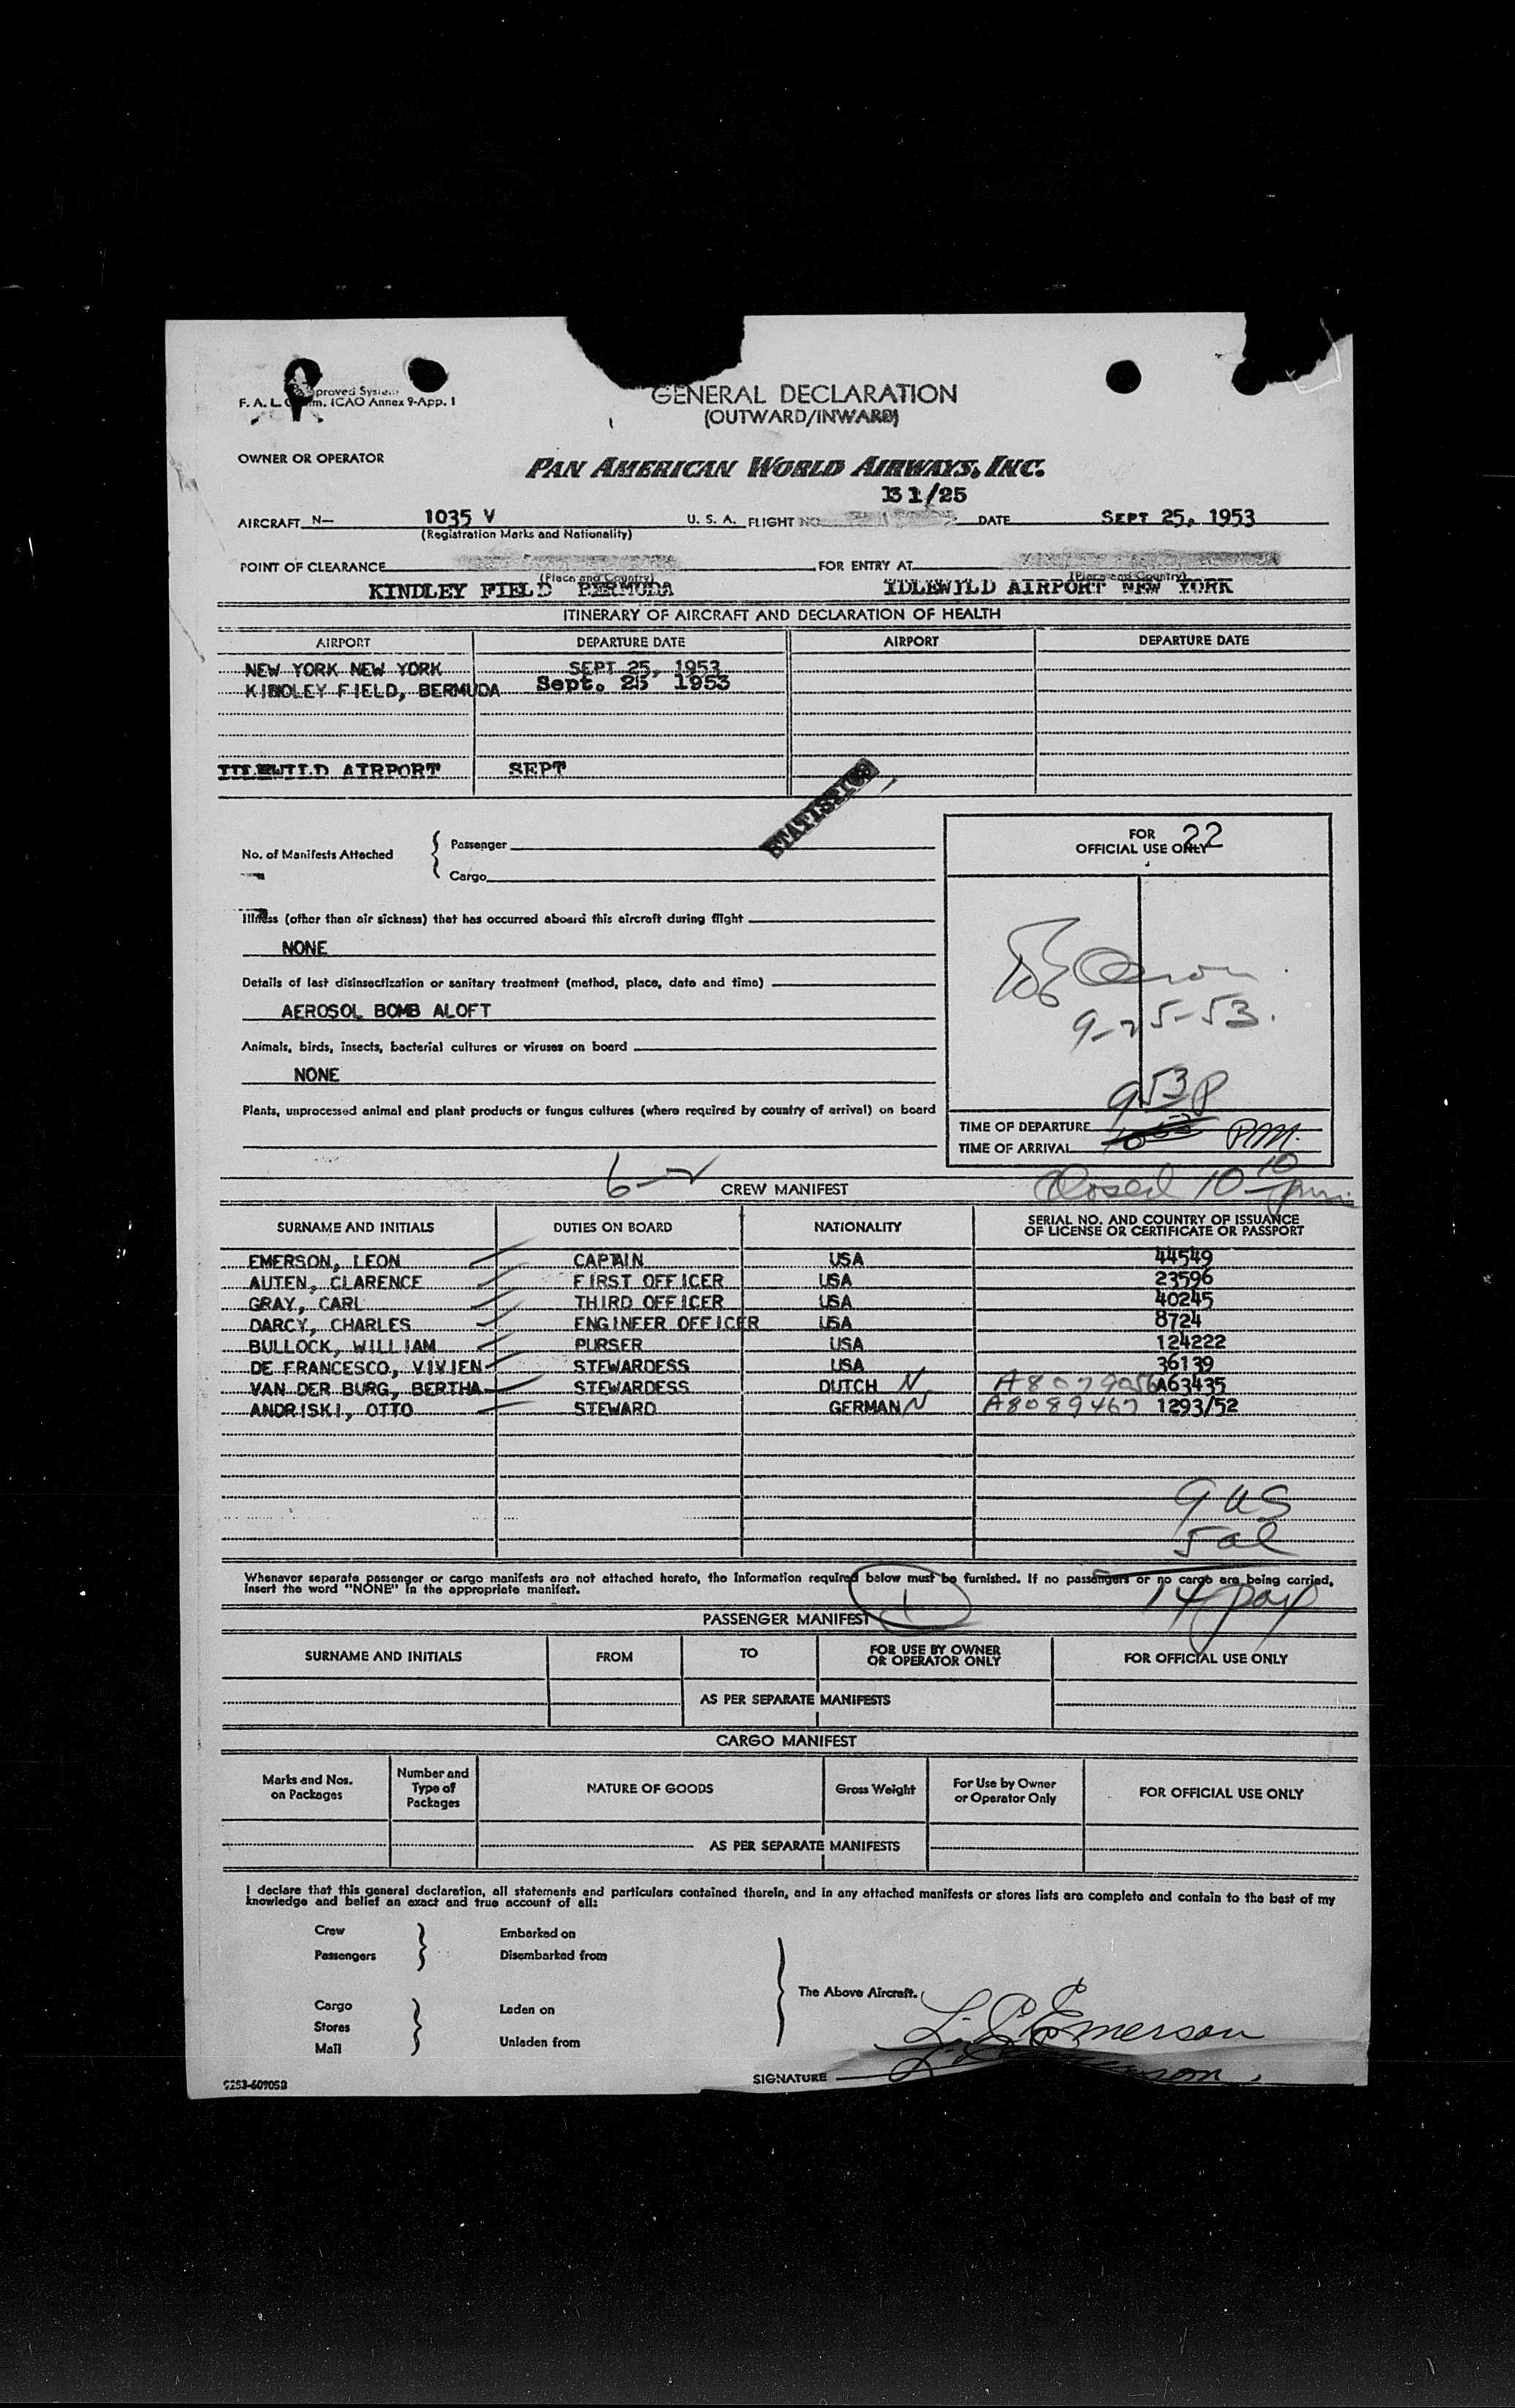 proved System
F. A. L. C m. ICAO Annex 9-App. 1
GENERAL DECLARATION
(OUTWARD/INWARD)
OWNER OR OPERATOR
PAN AMERICAN WORLD AIRWAYS, INC.
31/25
AIRCRAFT N— 1035 V U. S. A. FLIGHT NO. DATE SEPT 25, 1953
(Registration Marks and Nationality)
POINT OF CLEARANCE FOR ENTRY AT
(Place and Country) (Place and Country)
KINDLEY FIELD BERMUDA IDLEWILD AIRPORT NEW YORK
ITINERARY OF AIRCRAFT AND DECLARATION OF HEALTH
AIRPORT DEPARTURE DATE AIRPORT DEPARTURE DATE
NEW YORK NEW YORK SEPT 25, 1953
KINDLEY FIELD, BERMUDA Sept. 25 1953
IDLEWILD AIRPORT SEPT
STATISTICS
No. of Manifests Attached { Passenger
Cargo
FOR
OFFICIAL USE ONLY 22
Illness (other than air sickness) that has occurred aboard this aircraft during flight
NONE
Details of last disinsectization or sanitary treatment (method, place, date and time)
AEROSOL BOMB ALOFT
9-25-53.
Animals, birds, insects, bacterial cultures or viruses on board
NONE
953 P
Plants, unprocessed animal and plant products or fungus cultures (where required by country of arrival) on board
TIME OF DEPARTURE
TIME OF ARRIVAL PM.
6-2
CREW MANIFEST Closed 10 10 pm.
SURNAME AND INITIALS DUTIES ON BOARD NATIONALITY SERIAL NO. AND COUNTRY OF ISSUANCE
OF LICENSE OR CERTIFICATE OR PASSPORT
EMERSON, LEON CAPTAIN USA 44549
AUTEN, CLARENCE FIRST OFFICER USA 23596
GRAY, CARL THIRD OFFICER USA 40245
DARCY, CHARLES ENGINEER OFFICER USA 8724
BULLOCK, WILLIAM PURSER USA 124222
DE FRANCESCO, VIVIEN STEWARDESS USA 36139
VAN DER BURG, BERTHA STEWARDESS DUTCH N A8079056 A63435
ANDRISKI, OTTO STEWARD GERMAN N A8089467 1293/52
9 US
5 al
14 pax
Whenever separate passenger or cargo manifests are not attached hereto, the information required below must be furnished. If no passengers or no cargo are being carried,
insert the word "NONE" in the appropriate manifest.
1
PASSENGER MANIFEST
SURNAME AND INITIALS FROM TO FOR USE BY OWNER
OR OPERATOR ONLY FOR OFFICIAL USE ONLY
AS PER SEPARATE MANIFESTS
CARGO MANIFEST
Marks and Nos.
on Packages Number and
Type of
Packages NATURE OF GOODS Gross Weight For Use by Owner
or Operator Only FOR OFFICIAL USE ONLY
AS PER SEPARATE MANIFESTS
I declare that this general declaration, all statements and particulars contained therein, and in any attached manifests or stores lists are complete and contain to the best of my
knowledge and belief an exact and true account of all:
Crew Embarked on
Passengers Disembarked from
The Above Aircraft.
Cargo Laden on
Stores
Mail Unladen from
L. C. Emerson
SIGNATURE
9253-60905B